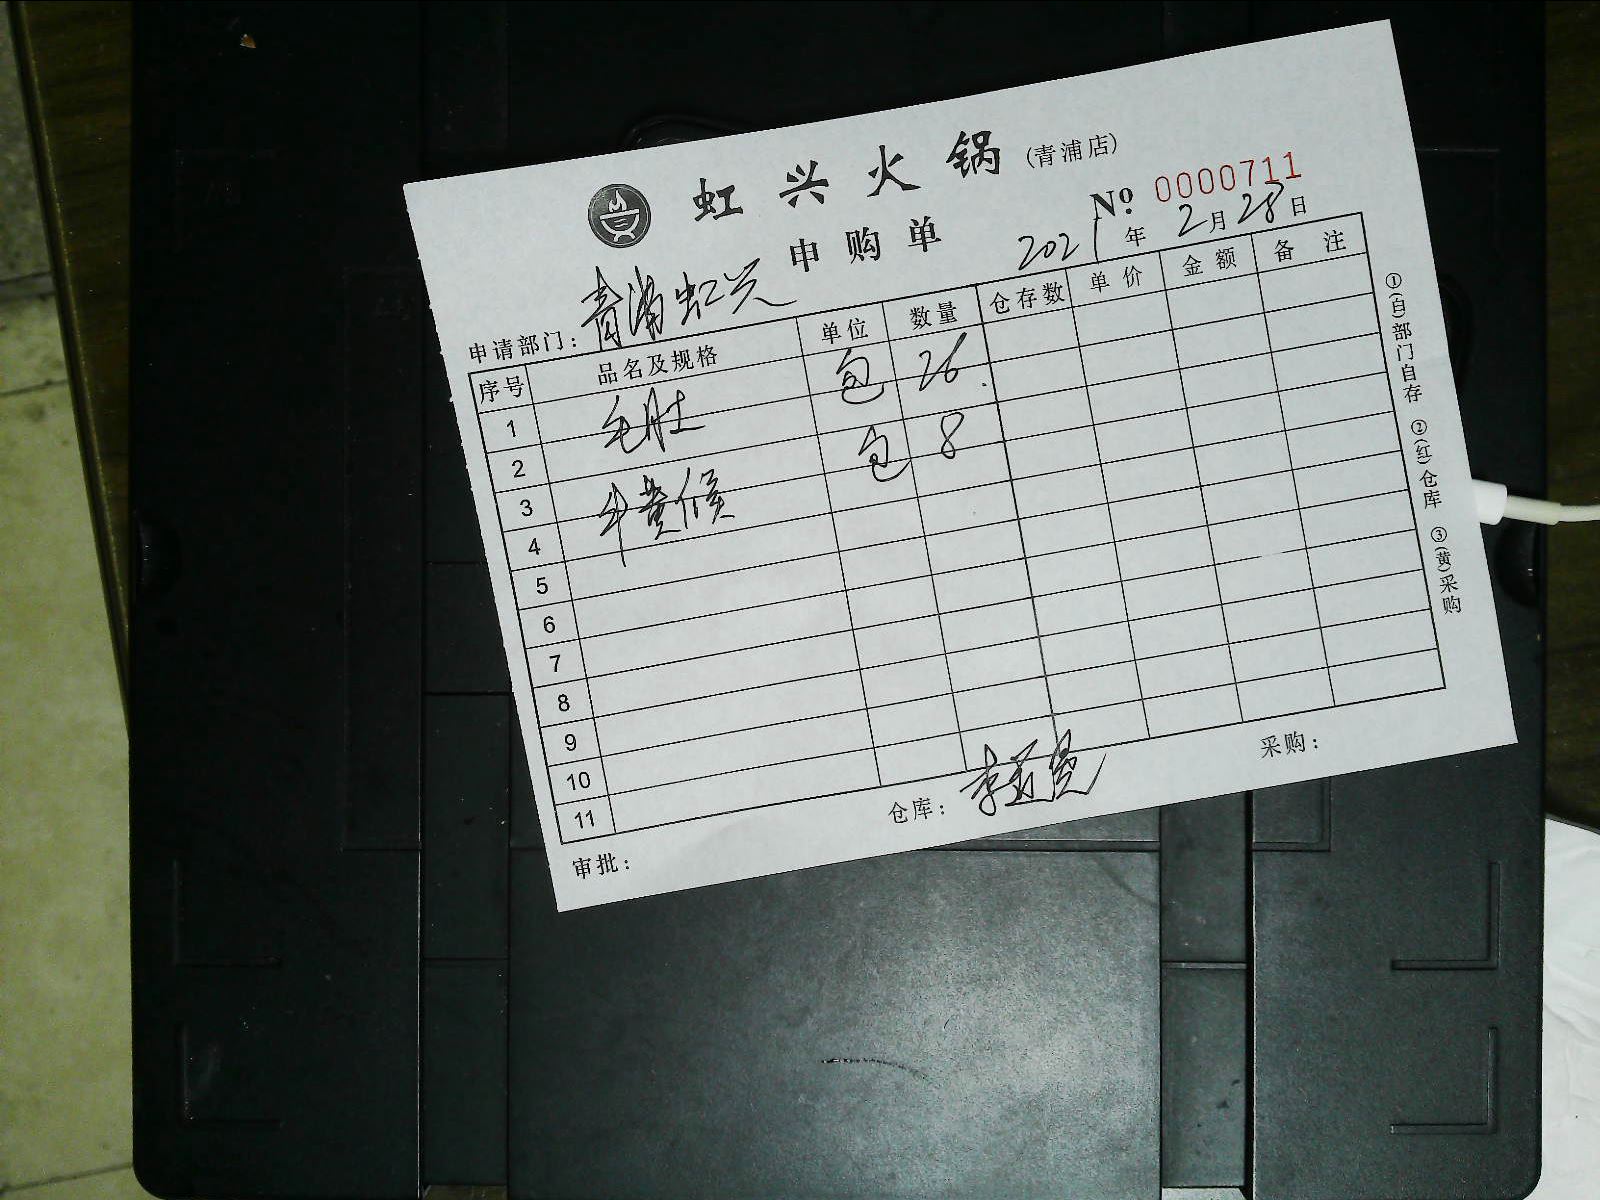 虹兴火锅(青浦店)
申购单
No. 0000711
2021年2月28日
申请部门：青浦虹兴
序号 品名及规格 单位 数量 仓存数 单价 金额 备注
1 毛肚 包 26
2
3 牛黄候 包 8
4
5
6
7
8
9
10
11
审批：
仓库：
采购：
①(白)部门自存 ②(红)仓库 ③(黄)采购